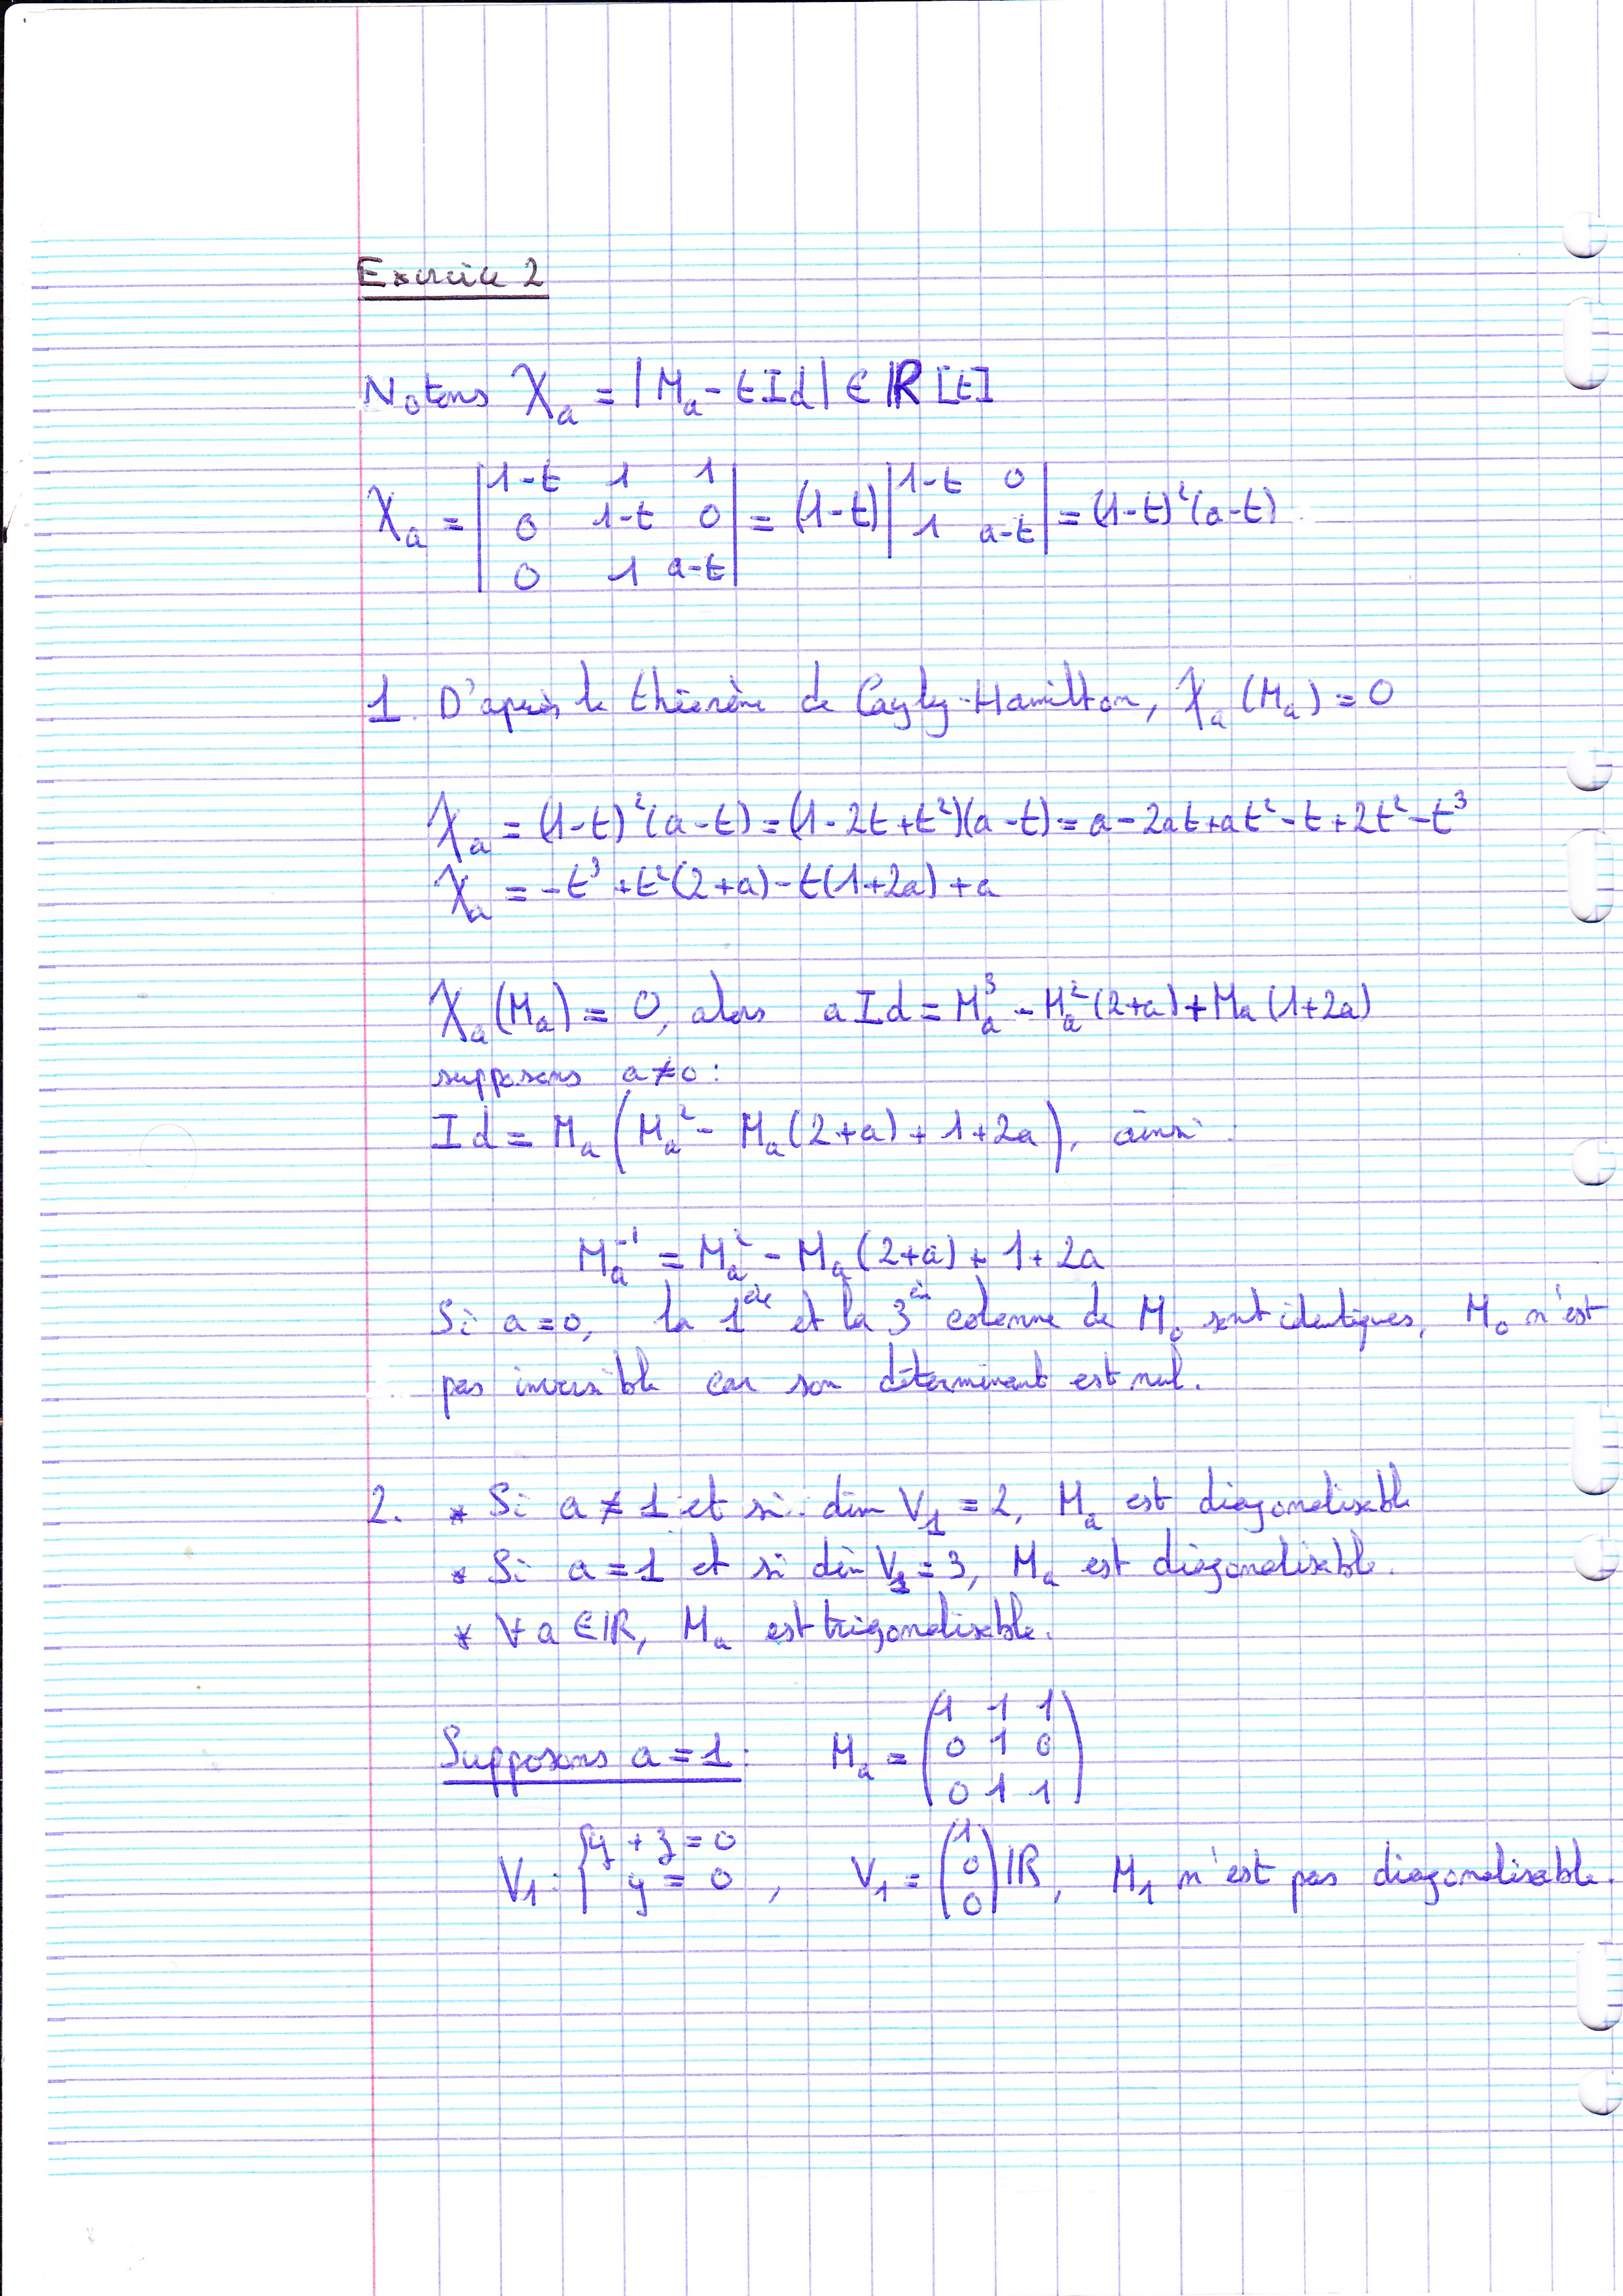 Exercice 2
Notons χ_a = |M_a - t Id| ∈ ℝ[t]
χ_a = |1-t 1 1 ; 0 1-t 0 ; 0 1 a-t| = (1-t) |1-t 0 ; 1 a-t| = (1-t)²(a-t)
1. D'après le théorème de Cayly-Hamilton, χ_a(M_a) = 0
χ_a = (1-t)²(a-t) = (1-2t+t²)(a-t) = a-2at+at²-t+2t²-t³
χ_a = -t³+t²(2+a)-t(1+2a)+a
χ_a(M_a) = 0, alors a Id = M_a³ - M_a²(2+a) + M_a(1+2a)
supposons a≠0 :
Id = M_a (M_a² - M_a(2+a) + 1+2a), ainsi
M_a⁻¹ = M_a² - M_a(2+a) + 1+2a
Si a=0, la 1ère et la 3è colonne de M_0 sont identiques, M_0 n'est
pas inversible car son déterminant est nul.
2. * Si a ≠ 1 et si dim V_1 = 2, M_a est diagonalisable
* Si a = 1 et si dim V_1 = 3, M_a est diagonalisable.
* ∀ a ∈ ℝ, M_a est trigonalisable.
Supposons a = 1 : M_a = (1 1 1 ; 0 1 0 ; 0 1 1)
V_1 : {y + z = 0 ; y = 0, V_1 = (1 ; 0 ; 0) ℝ, M_1 n'est pas diagonalisable.